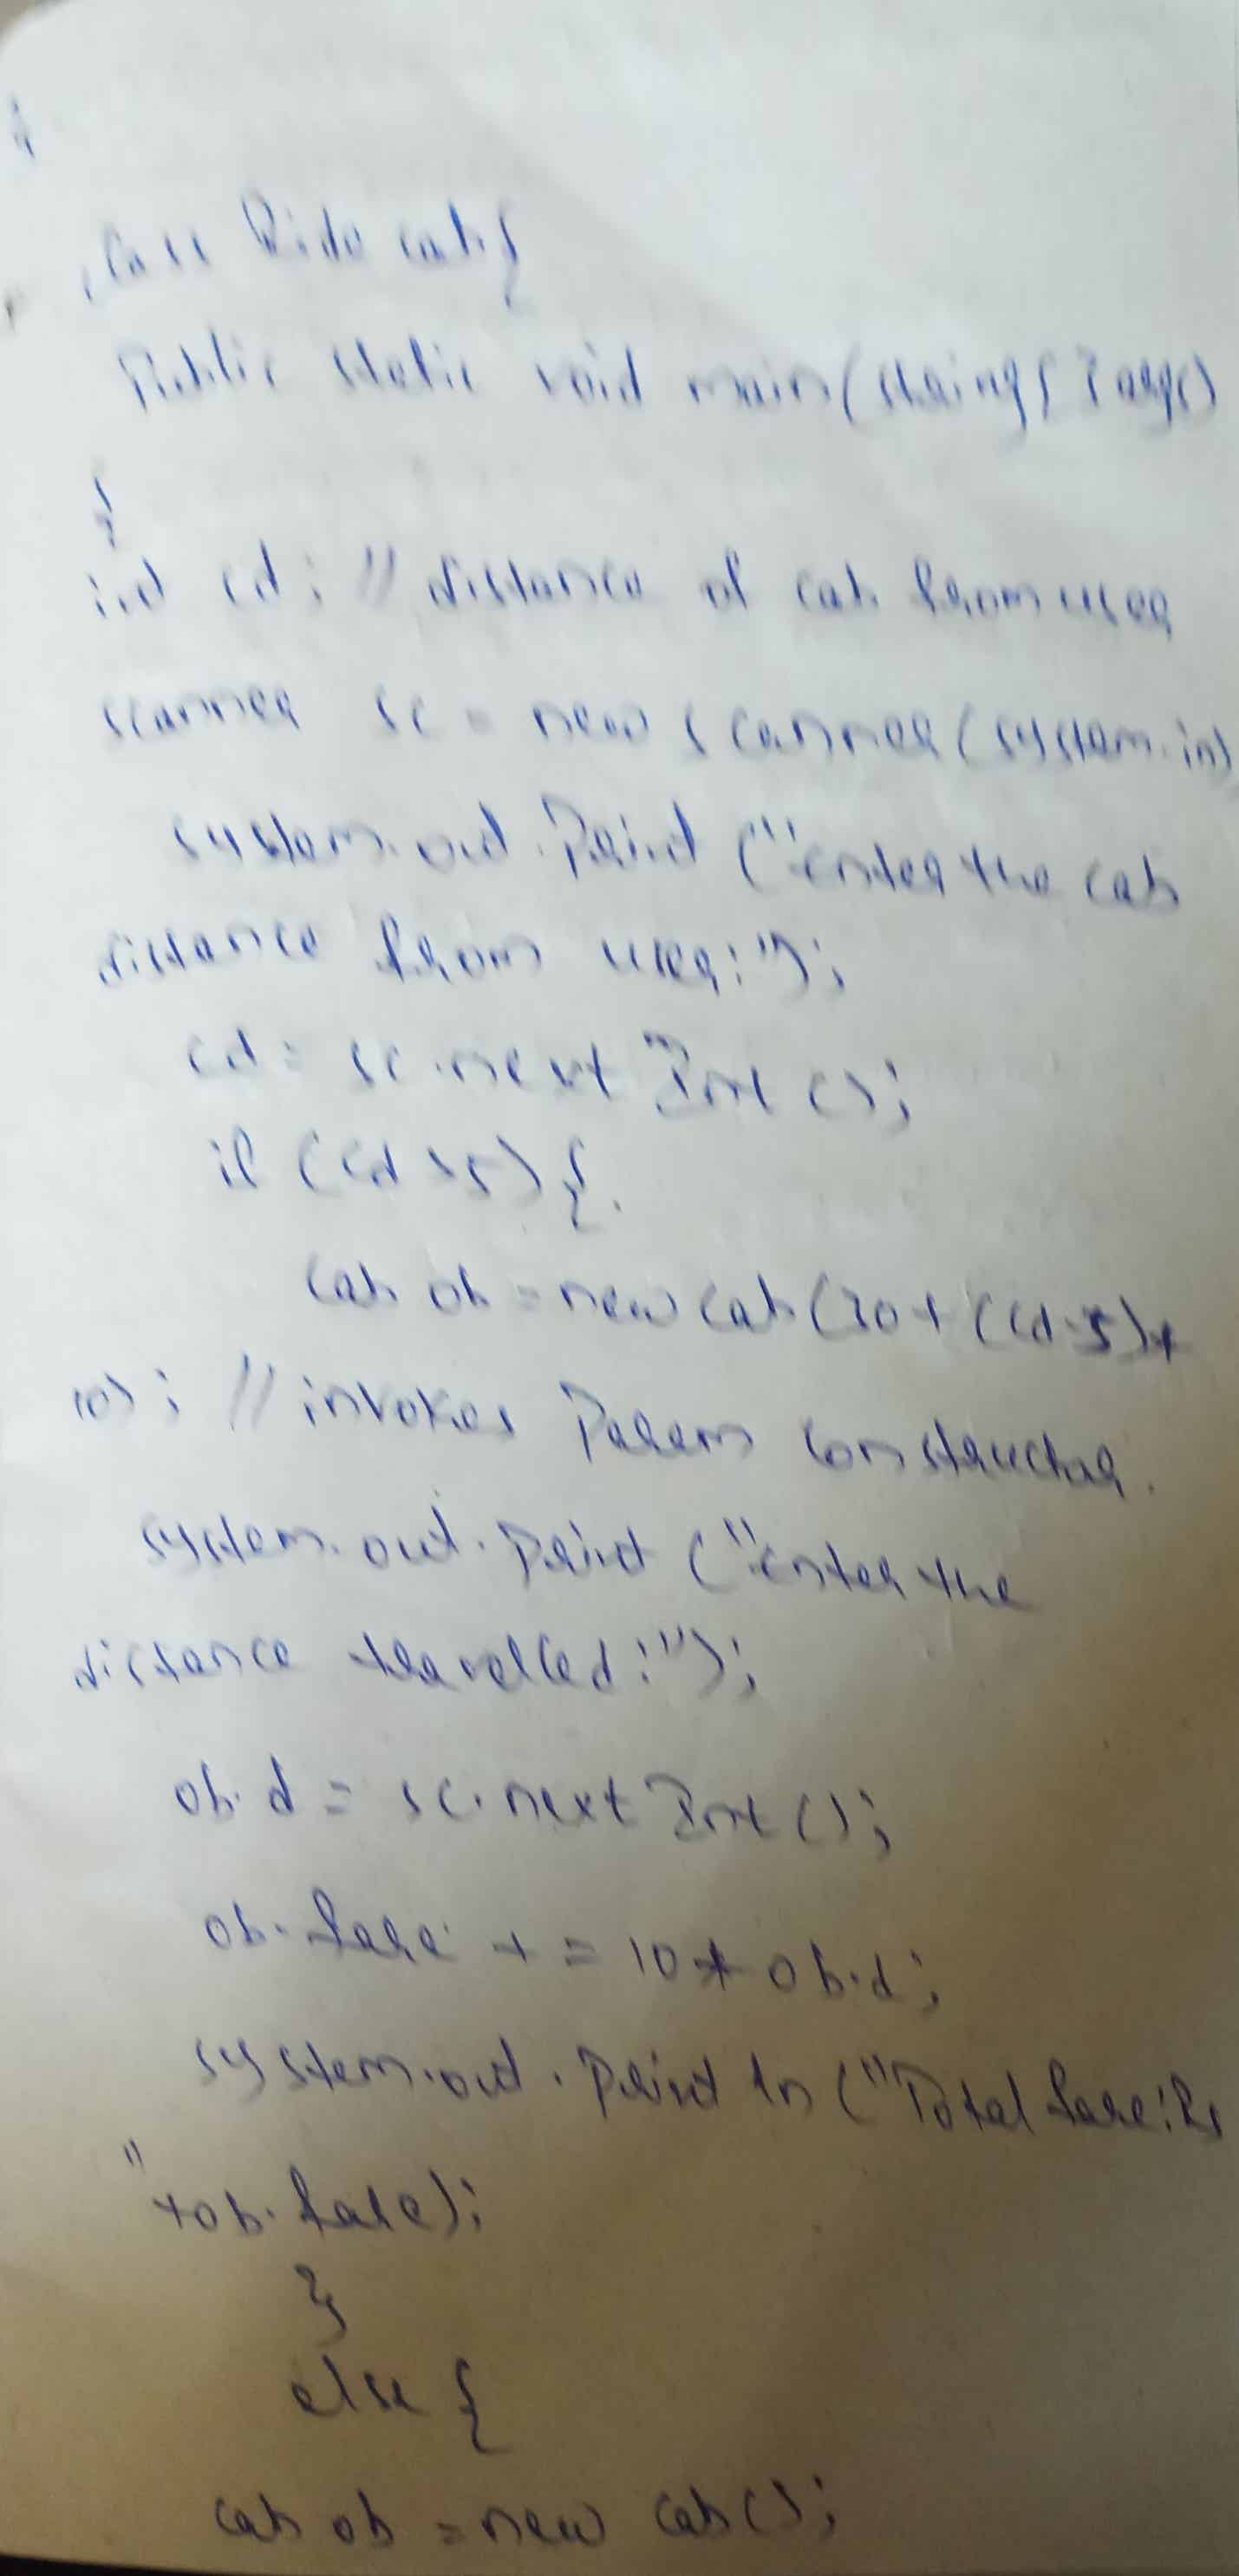 }
class Ride cab{
Public static void main(string[] args)
{
int cd; // distance of cab from user
scanner sc = new scanner(system.in)
system.out.Print ("enter the cab
distance from user:");
cd = sc.next Int ();
if (cd >5) {
cab ob = new cab (30+((cd-5)*
10); // invokes Param constructor.
system.out.print ("enter the
distance travelled:");
ob.d = sc.next Int ();
ob.fare + = 10 * ob.d;
system.out.print ln ("Total fare:Rs
"+ob.fare);
}
else {
cab ob = new cab();